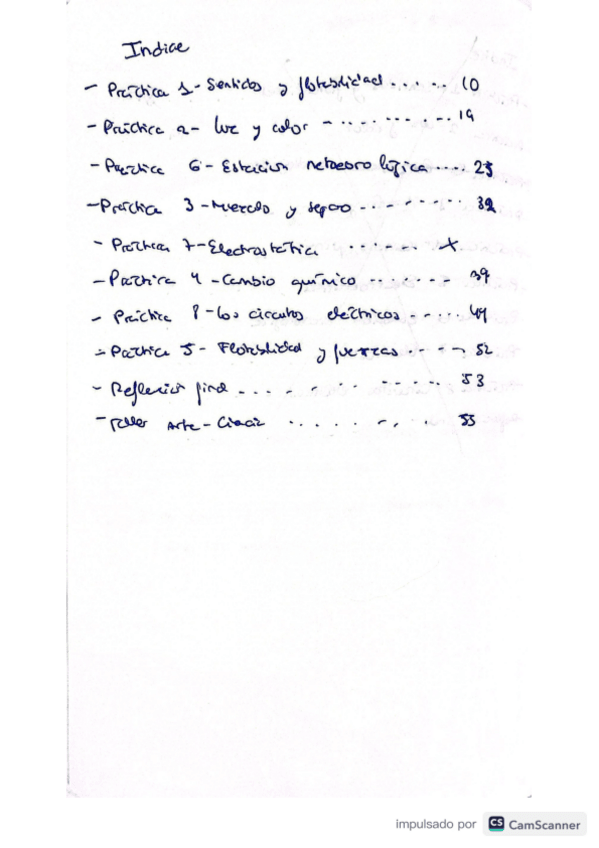 Indice
- Práctica 1 - Sentidos y flotabilidad ...... 10
- Práctica 2 - luz y color - ......... 19
- Práctica 6 - Estación meteorológica .... 25
- Práctica 3 - Mezclas y separo ........ 32
- Práctica 7 - Electrostática ...... X
- Práctica 4 - Cambio químico ....... 39
- Práctica 8 - los circuitos eléctricos ...... 49
- Práctica 5 - Flotabilidad y fuerzas ..... 52
- Reflexión final .......... 53
- Taller Arte - Ciencia ........ 55
impulsado por CS CamScanner